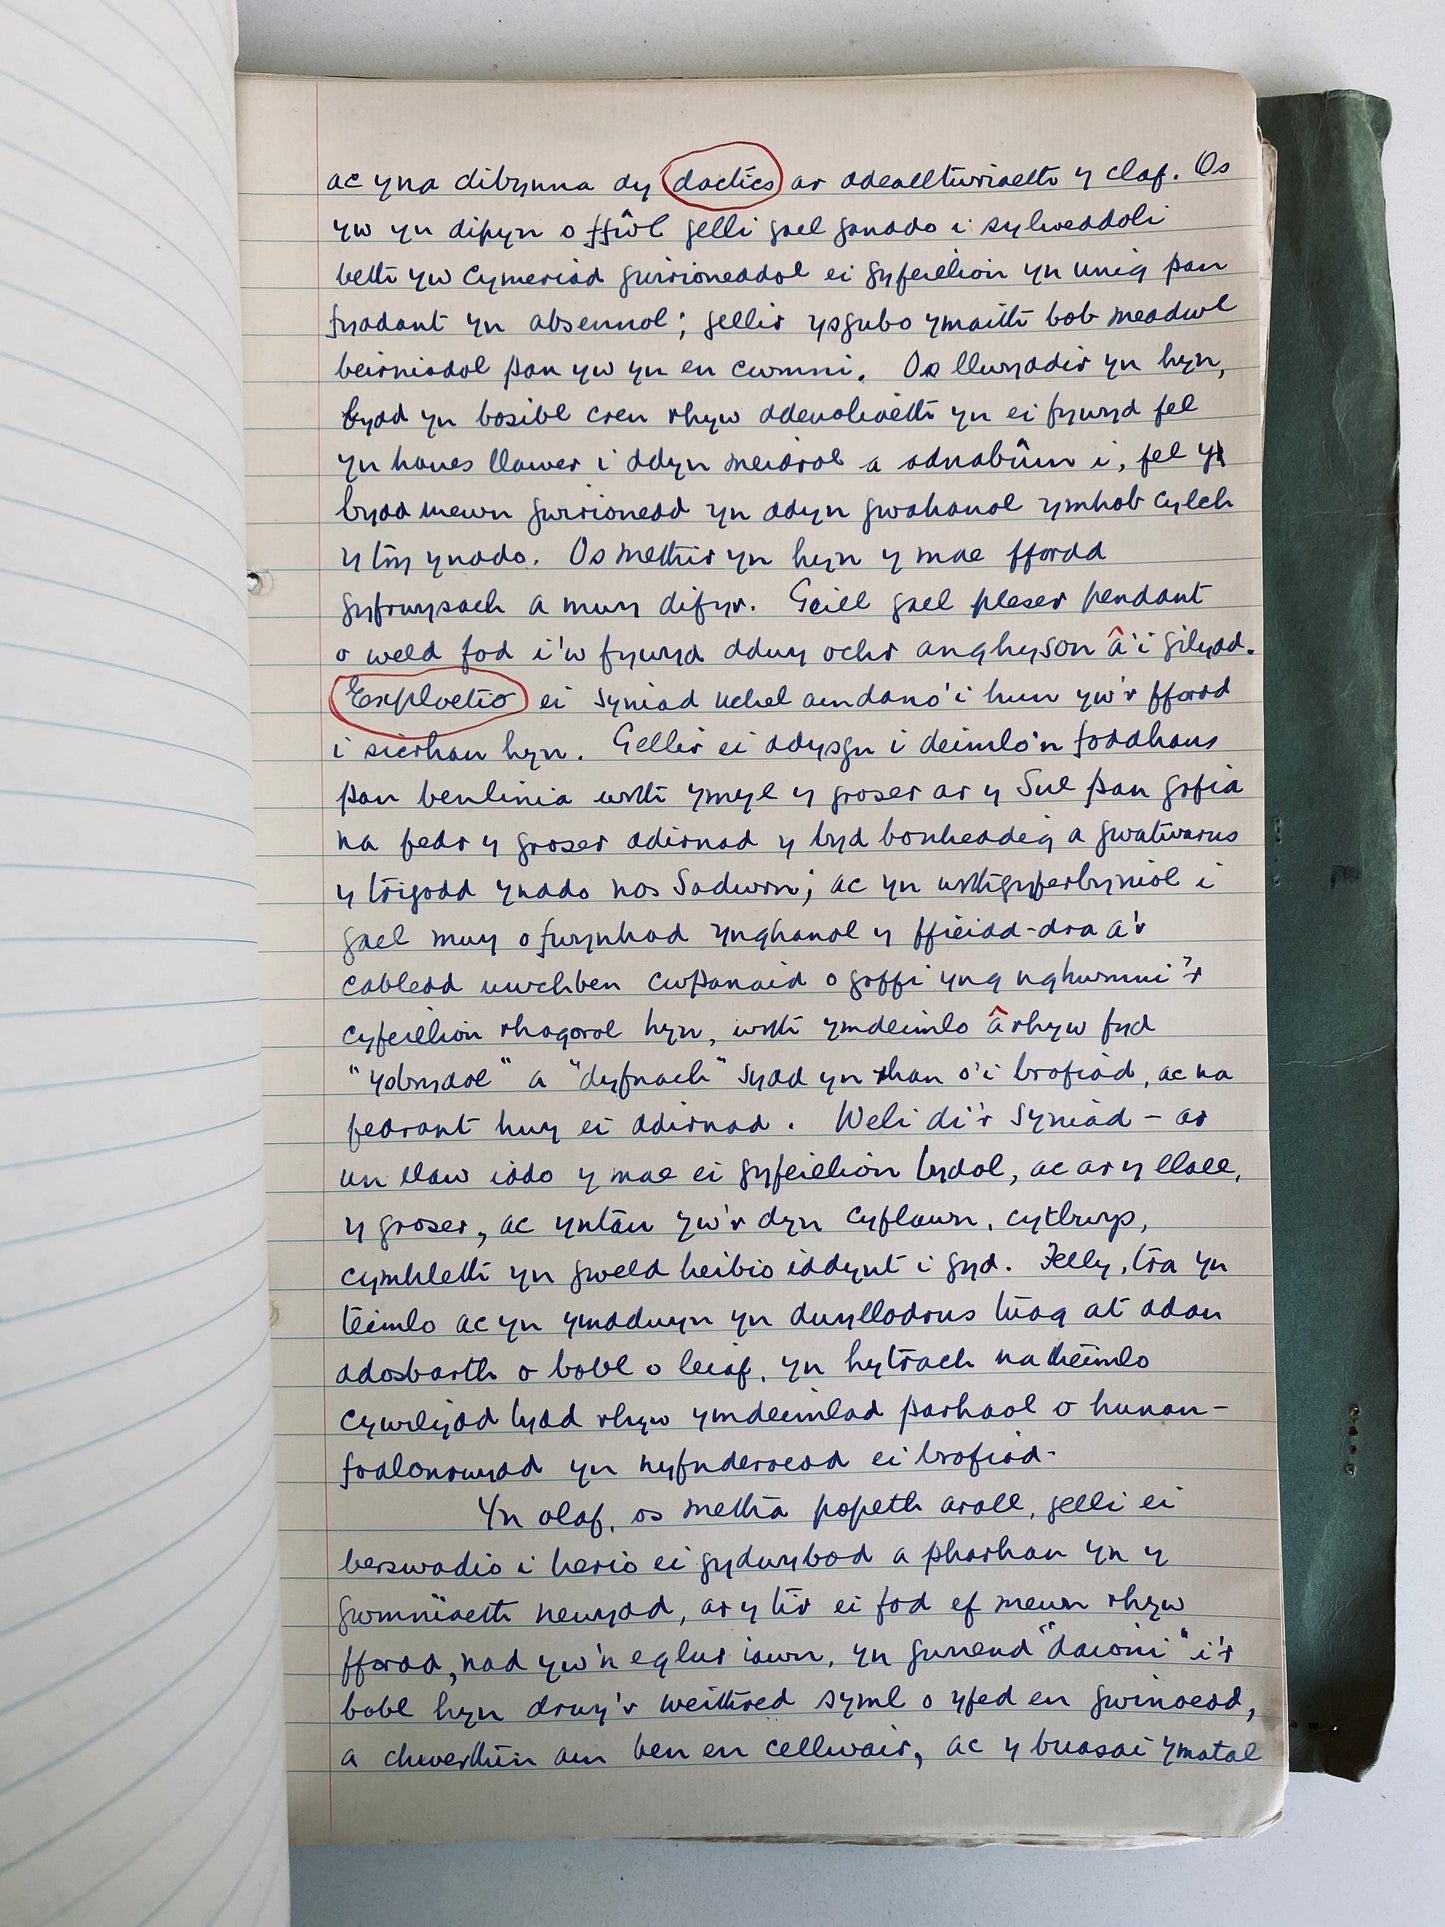 ac yna dibynna dy dactics ar ddealltwriaeth y claf. Os
yw yn dipyn o ffŵl gelli gael ganddo i sylweddoli
beth yw cymeriad gwirioneddol ei gyfeillion yn unig pan
fyddant yn absennol; gellir ysgubo ymaith bob meddwl
beirniadol pan yw yn eu cwmni. Os llwyddir yn hyn,
bydd yn bosibl creu rhyw ddeuoliaeth yn ei fywyd fel
yn hanes llawer i ddyn meidrol a adnabûm i, fel y
bydd mewn gwirionedd yn ddyn gwahanol ymhob cylch
y try ynddo. Os methir yn hyn y mae ffordd
gyfrwysach a mwy difyr. Geill gael pleser pendant
o weld fod i'w fywyd ddwy ochr anghyson â'i gilydd.
Exploetio ei syniad uchel amdano'i hun yw'r ffordd
i sicrhau hyn. Gellir ei ddysgu i deimlo'n foddhaus
pan benlinia wrth ymyl y groser ar y Sul pan gofia
na fedr y groser ddirnad y byd bonheddig a gwatwarus
y trigodd ynddo nos Sadwrn; ac yn wrthgyferbyniol i
gael mwy o fwynhad ynghanol y ffieidd-dra a'r
cabledd uwchben cwpanaid o goffi yng nghwmni'r
cyfeillion rhagorol hyn, wrth ymdeimlo â rhyw fyd
"ysbrydol" a "dyfnach" sydd yn rhan o'i brofiad, ac na
fedrant hwy ei ddirnad. Weli di'r syniad – ar
un llaw iddo y mae ei gyfeillion bydol, ac ar y llall,
y groser, ac yntau yw'r dyn cyflawn, cytbwys,
cymhleth yn gweld heibio iddynt i gyd. Felly, tra yn
teimlo ac yn ymddwyn yn dwyllodrus tuag at ddau
ddosbarth o bobl o leiaf, yn hytrach na theimlo
cywilydd bydd rhyw ymdeimlad parhaol o hunan-
fodlonrwydd yn nyfnderoedd ei brofiad.
Yn olaf, os metha popeth arall, gelli ei
berswadio i herio ei gydwybod a pharhau yn y
gwmnïaeth newydd, ar y tir ei fod ef mewn rhyw
ffordd, nad yw'n eglur iawn, yn gwneud "daioni" i'r
bobl hyn drwy'r weithred syml o yfed eu gwinoedd,
a chwerthin am ben eu cellwair, ac y buasai ymatal